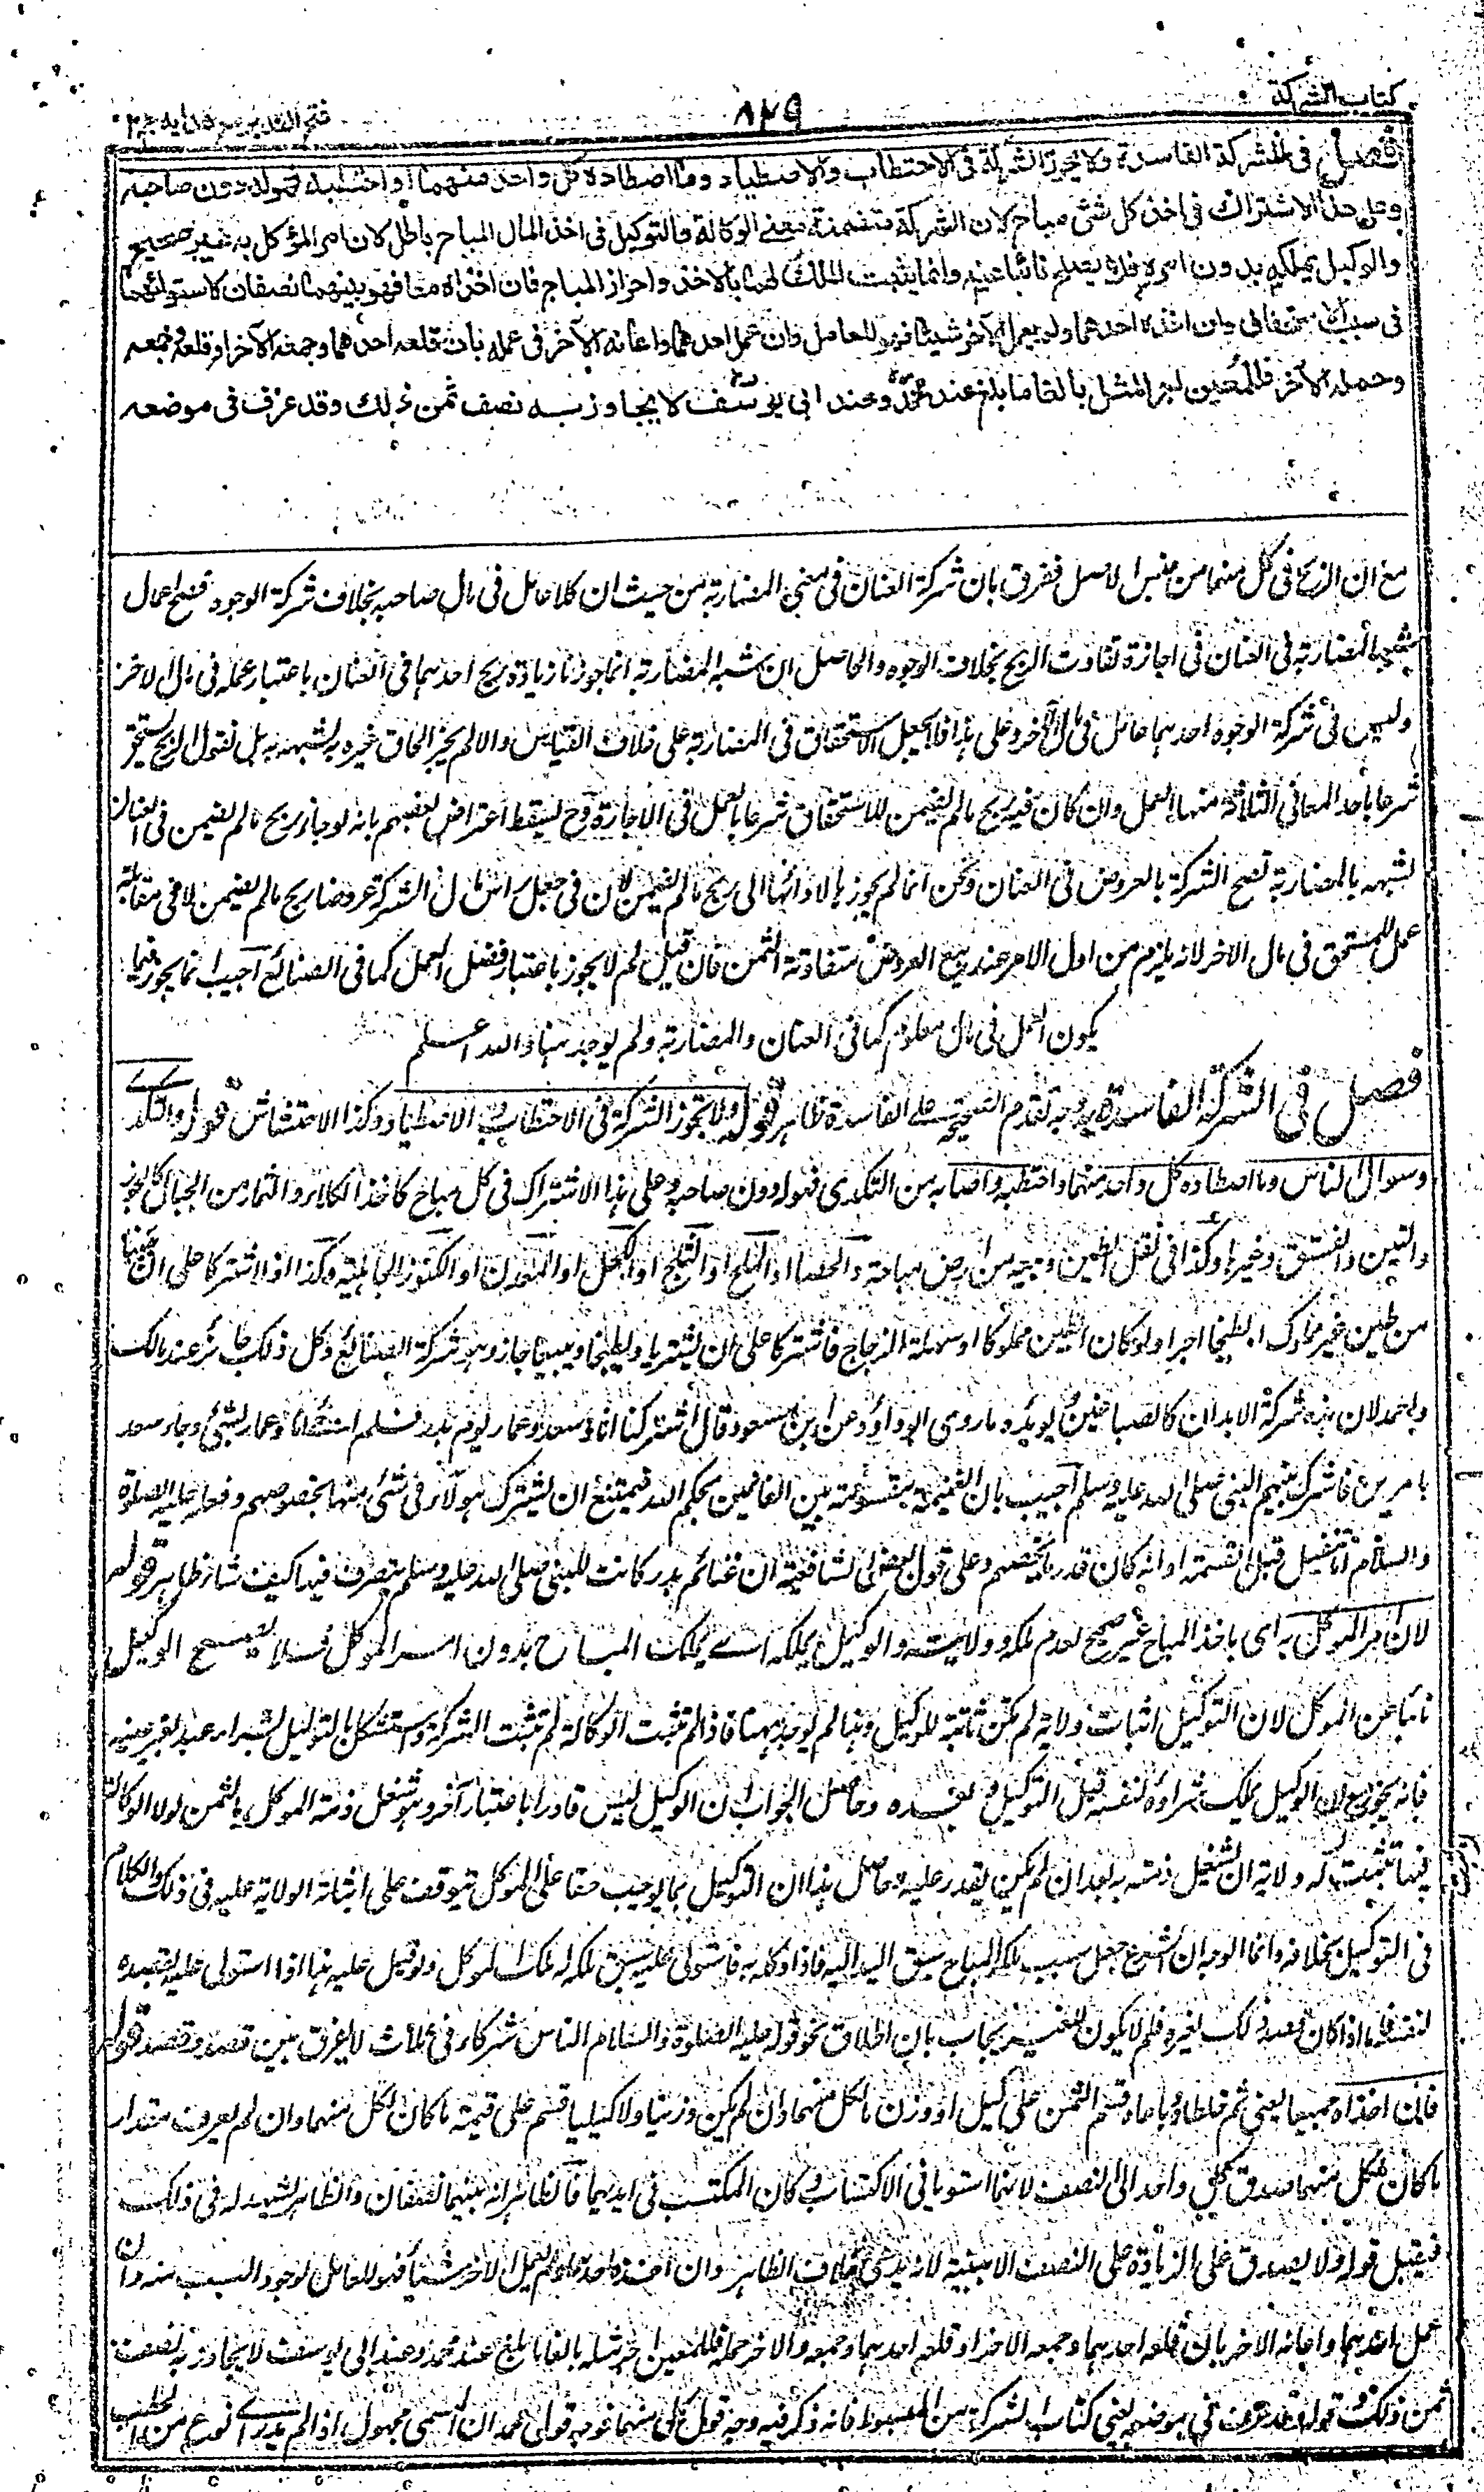 كتاب الشركة
٨٢٩
فتح القدير مع الهداية ج ٢
فصل في الشركة الفاسدة ولا يجوز الشركة في الاحتطاب والاصطياد وما اصطاده كل واحد منهما او احتطبه فهو له دون صاحبه
وعلى هذا الاشتراك في اخذ كل شئ مباح لان الشركة متضمنة معنى الوكالة والتوكيل في اخذ المال المباح باطل لان امر المؤكل به غير صحيح
والوكيل يملكه بدون امره فلا يصلح نائبا عنه وانما يثبت الملك لهما بالاخذ واحراز المباح فان اخذاه معا فهو بينهما نصفان لاستوائهما
في سبب الاستحقاق وان اخذه احدهما ولم يعمل الآخر شيئا فهو للعامل وان عمل احدهما واعانه الآخر في عمله بان قلعه احدهما وجمعه الآخر او قلعه وجمعه
وحمله الآخر فللمعين اجر المثل بالغا ما بلغ عند محمد وعند ابى يوسف لا يجاوز به نصف ثمن ذلك وقد عرف في موضعه
مع ان الربح في كل منهما من جنس الاصل ففرق بان شركة العنان في معنى المضاربة من حيث ان كلا عامل في مال صاحبه بخلاف شركة الوجوه فصلح اعمال
شبه المضاربة في العنان في اجازة تفاوت الربح بخلاف الوجوه والحاصل ان شبه المضاربة انما جوزنا زيادة ربح احدهما في العنان باعتبار عمله في مال الاخر
وليس في شركة الوجوه احدهما عامل في مال الآخر وعلى هذا فلا يجعل الاستحقاق في المضاربة على خلاف القياس والا لم يجز الحاق غيره به لشبهه به بل نقول الربح يستحق
شرعا باحد المعاني الثلاثة منها العمل وان كان فيه ربح مالم يضمن للاستحقاق شرعا بالعمل في الاجارة وح يسقط اعتراض بعضهم بانه لو جاز ربح مالم يضمن في العنان
لشبهه بالمضاربة تصح الشركة بالعروض في العنان ونحن انما لم يجوز بالادائها الى ربح مالم يضمن لان في جعل راس مال الشركة عروضا ربح مالم يضمن لا في مقابلة
عمل للمستحق في مال الاخر لانه يلزم من اول الامر عند بيع العروض متفاوتة الثمن فان قيل لم لا يجوز باعتبار فضل العمل كما في الصنائع اجيب انما يجوز فيما
يكون العمل في مال معلوم كما في العنان والمضاربة ولم يوجد هنا والله اعلم
فصل في الشركة الفاسدة وجه تقديم الصحيحة على الفاسدة ظاهر قوله ولا تجوز الشركة في الاحتطاب والاصطياد وكذا الاحتشاش قوله والتكدى
وسوال الناس وما اصطاده كل واحد منهما واحتطبه واصابه من التكدي فهو له دون صاحبه وعلى هذا الاشتراك في كل مباح كاخذ الكلاء والثمار من الجبال كالجوز
والتين والفستق وغيرها وكذا في نقل الطين وبيعه من ارض مباحة والحصا او الملح او الثلج او الكحل او المعدن او الكنوز الجاهلية وكذا اذا اشتركا على ان يلبنا
من طين غير مملوك او يطبخا اجرا ولو كان الطين مملوكا او سهلة الزجاج فاشتركا على ان يشتريا ويطبخا ويبيعا جاز وهو شركة الصنائع وكل ذلك جائز عند مالك
واحمد لان هذه شركة الابدان كالصباغين يويده ما روى ابو داؤد عن ابن مسعود قال اشتركنا انا وسعد وعمار يوم بدر فلم اجئ انا وعمار بشئ وجاء سعد
باسيرين فاشرك بينهم النبي صلى الله عليه وسلم اجيب بان الغنيمة مقسومة بين الغانمين بحكم الله فيمتنع ان يشترك هولاء في شئ منها بخصوصهم وفعله عليه الصلوة
والسلام انما تنفيل قبل القسمة او انه كان قدر ما يخصهم وعلى قول بعض الشافعية ان غنائم بدر كانت للنبي صلى الله عليه وسلم يتصرف فيها كيف شاء ظاهر قوله
لان امر الموكل به اي باخذ المباح غير صحيح لعدم ملكه وولايته والوكيل يملكه اے يملك المباح بدون امر الموكل فلا يصلح الوكيل
نائبا عن الموكل لان التوكيل اثبات ولاية لم تكن ثابتة للوكيل وهذا لم يوجد ههنا فاذا لم تثبت الوكالة لم تثبت الشركة واستشكل بالتوكيل بشراء عبد بغير عينه
فانه يجوز مع ان الوكيل يملك شراءه لنفسه قبل التوكيل وبعده وحاصل الجواب ان الوكيل ليس قادرا باعتبار آخر وهو شغل ذمة الموكل بالثمن لولا الوكالة
فبها تثبت له ولاية ان يشغل ذمته به بعد ان لم يكن يقدر عليه وحاصل هذا ان التوكيل بما يوجب حقا على الموكل يتوقف على اثباته الولاية عليه في ذلك والكلام
في التوكيل بخلافه وانما الوجه ان الشرع جعل سبب ملك المباح سبق اليد اليه فاذا وكله به فاستولى عليه سبق ملكه له ملك الموكل ولو قيل عليه هذا اذا استولى عليه بقصده
لنفسه فاما اذا كان قصده ذلك لغيره فلم لا يكون للغير يجاب بان اطلاق نحو قوله عليه الصلوة والسلام الناس شركاء في ثلاث لا يفرق بين قصد وقصد قوله
فان اخذاه جميعا يعني ثم خلطاه وباعاه قسم الثمن على كيل او وزن ما لكل منهما وان لم يكن وزنيا ولا كيليا قسم على قيمة ما كان لكل منهما وان لم يعرف مقدار
ما كان لكل منهما صدق كل واحد الى النصف لانهما استويا في الاكتساب وكان المكتسب في ايديهما فالظاهر انه بينهما نصفان والظاهر يشهد له في ذلك
فيقبل قوله ولا يصدق على الزيادة على النصف الا ببينة لانه يدعى خلاف الظاهر وان اخذه احدهما ولم يعمل الاخر شيئا فهو للعامل لوجود السبب منه وان
عمل احدهما واعانه الاخر بان قلعه احدهما وجمعه الاخر او قلعه احدهما وجمعه والاخر حمله فللمعين اجر مثله بالغا ما بلغ عند محمد وعند ابى يوسف لا يجاوز به نصف
ثمن ذلك قوله وقد عرف في موضعه يعني كتاب الشركة من المبسوط فانه ذكر فيه وجه قول كل منهما فوجه قول محمد ان المسمى مجهول اذ لم يدر اے نوع من الحطب